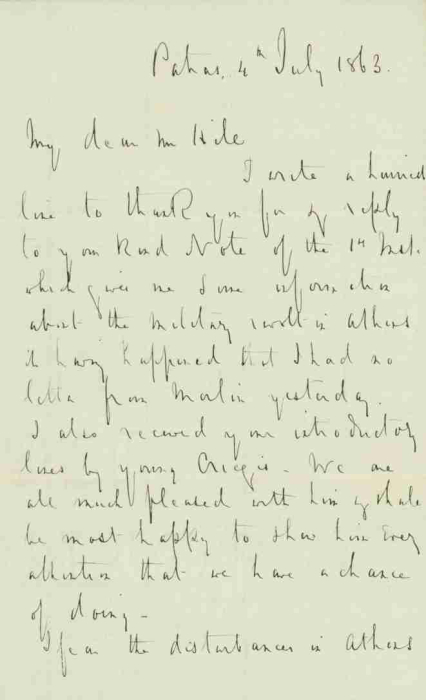 Patras, 4th July 1863.
My dear Mr Hill
I write a hurried
line to thank you for & reply
to your kind Note of the 1st Inst.
which gives me some information
about the Military revolt in Athens
it having happened that I had no
letter from Merlin yesterday.
I also received your introductory
lines by young - We are
all much pleased with him & shall
be most happy to show him every
attention that we have a chance
of doing -
I fear the disturbances in Athens